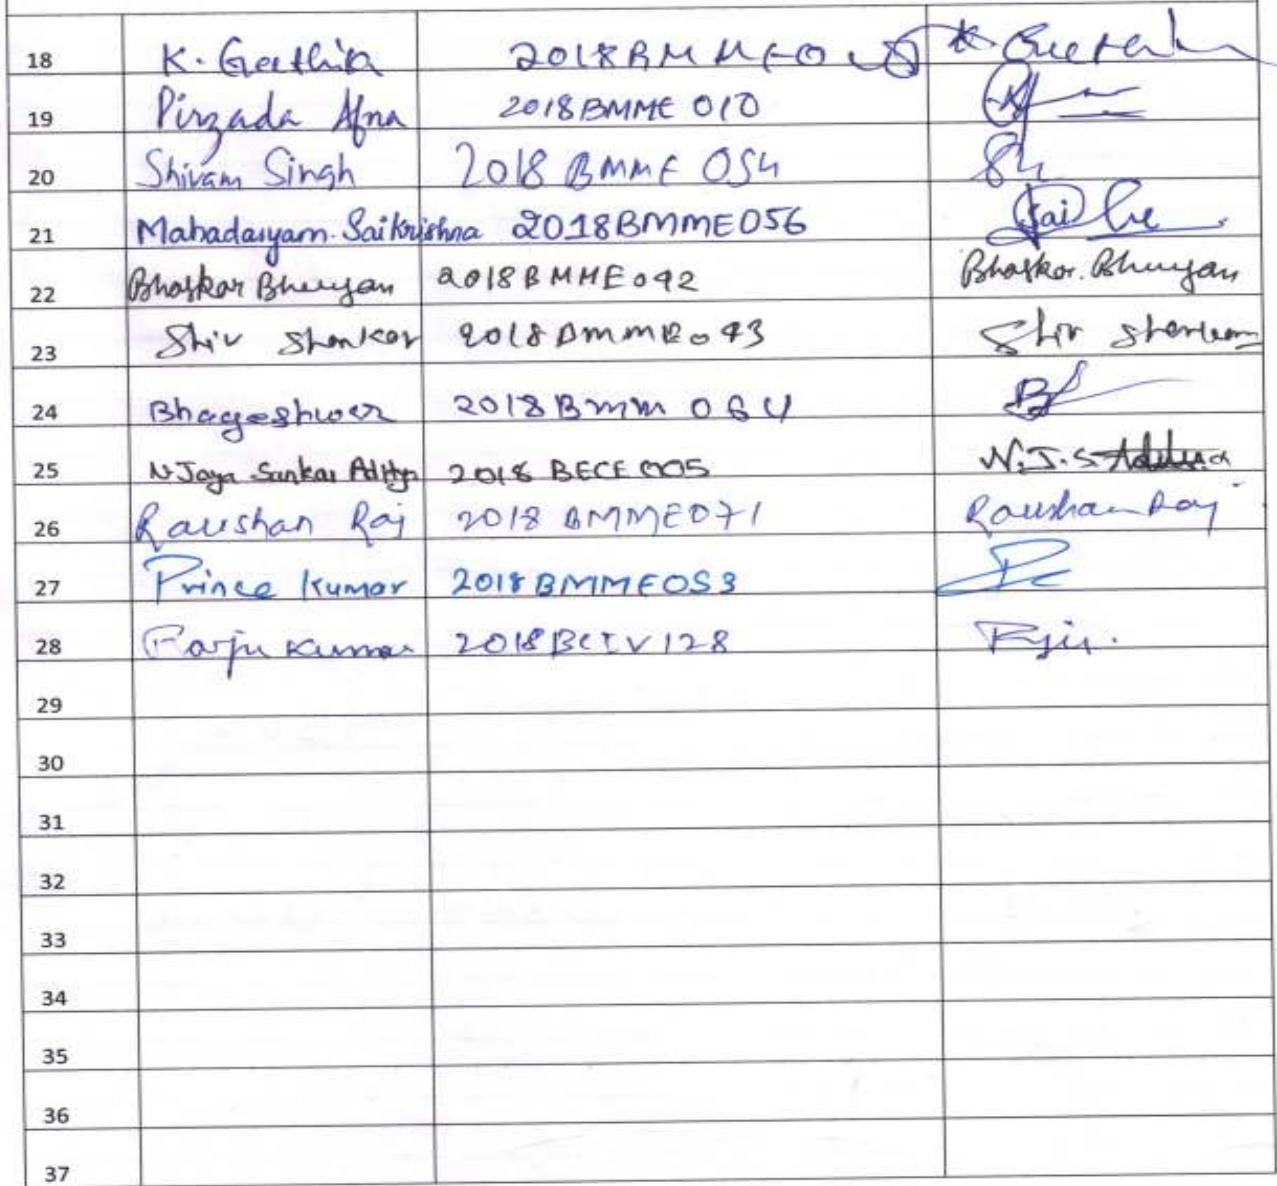 18 K. Geethika 2018BMME0 K. Geetha
19 Pirzada Afna 2018BMME 010
20 Shivam Singh 2018 BMME 054 Sh
21 Mahadasyam. Saikrishna 2018BMME056 Sai
22 Bhaskar Bhuyan 2018BMME092 Bhaskar. Bhuyan
23 Shiv Shankar 2018BMME093 Shiv Shankar
24 Bhageshwer 2018Bmm 064 B
25 N Jaya Sankar Aditya 2018 BECE005 N.J.S
26 Raushan Raj 2018 BMME071 Raushan Raj
27 Prince Kumar 2018BMME053
28 Raju Kumar 2018BCIV128
29
30
31
32
33
34
35
36
37